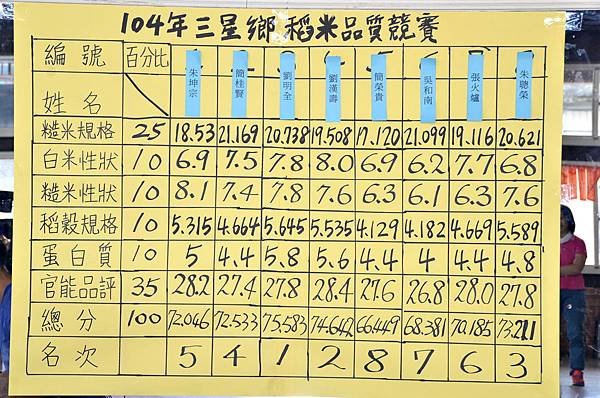 104年三星鄉 稻米品質競賽
編號 百分比
姓名 朱坤宗 簡桂賢 劉明全 劉漢壽 簡榮貴 吳和南 張火爐 朱聰榮
糙米規格 25 18.53 21.169 20.738 19.508 17.120 21.099 19.116 20.621
白米性狀 10 6.9 7.5 7.8 8.0 6.9 6.2 7.7 6.8
糙米性狀 10 8.1 7.4 7.8 7.6 6.3 6.1 6.3 7.6
稻穀規格 10 5.315 4.664 5.645 5.535 4.129 4.182 4.669 5.589
蛋白質 10 5 4.4 5.8 5.6 4.4 4 4.4 4.8
官能品評 35 28.2 27.4 27.8 28.4 27.6 26.8 28.0 27.8
總分 100 72.046 72.533 75.583 74.642 66.449 68.381 70.185 73.211
名次 5 4 1 2 8 7 6 3